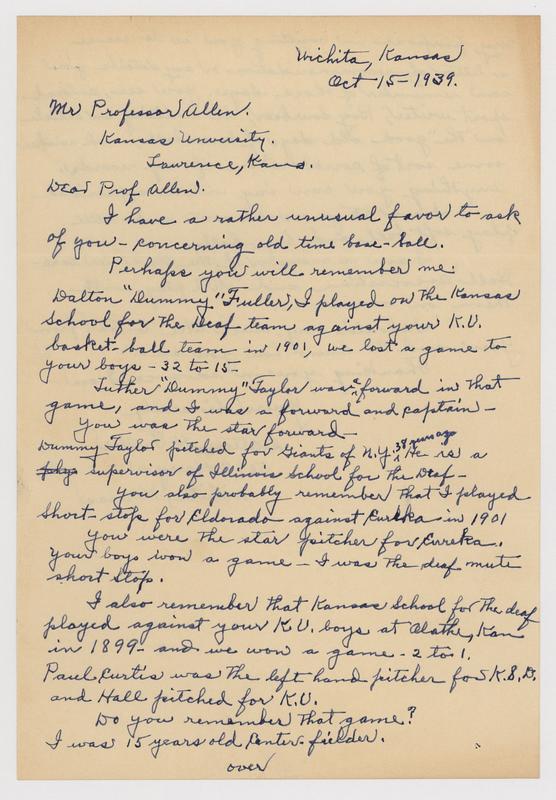 Wichita, Kansas
Oct 15-1939.
Mr Professor Allen.
Kansas Unversity.
Lawrence, Kans.
Dear Prof Allen.
I have a rather unusual favor to ask
of you - concerning old time base-ball.
Perhaps you will remember me
Dalton "Dummy" Fuller, I played on the Kansas
School for the Deaf team against your K.U.
basket-ball team in 1901, we lost a game to
your boys - 32 to 15-
Luther "Dummy" Taylor was a forward in that
game, and I was a forward and captain-
You were the star forward-
Dummy Taylor pitched for Giants of N.Y. 38 years ago He is a
supervisor of Illinois School for the Deaf-
You also probably remember that I played
Short-stop for Eldorado against Eureka in 1901
You were the star pitcher for Eureka.
Your boys won a game - I was the deaf mute
short stop.
I also remember that Kansas School for the deaf
played against your K.U. boys at Olathe, Kan
in 1899- and we won a game - 2 to 1.
Paul Curtis was the left hand pitcher for K.S.D.
and Hall pitched for K.U.
Do you remember that game?
I was 15 years old Center-fielder.
over